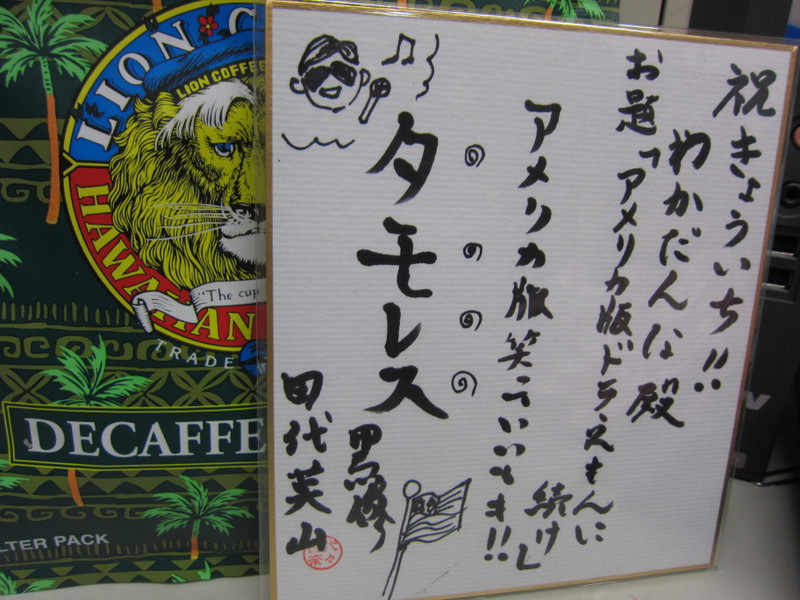 祝きょういち!!
わかだんな殿
お題「アメリカ版ドラえもんに
続け」
アメリカ版笑っていいとも!!
タモレス
田代
LION C
LION COFFEE
HAWAIIAN
"The cup
TRADE
DECAFFE
LTER PACK